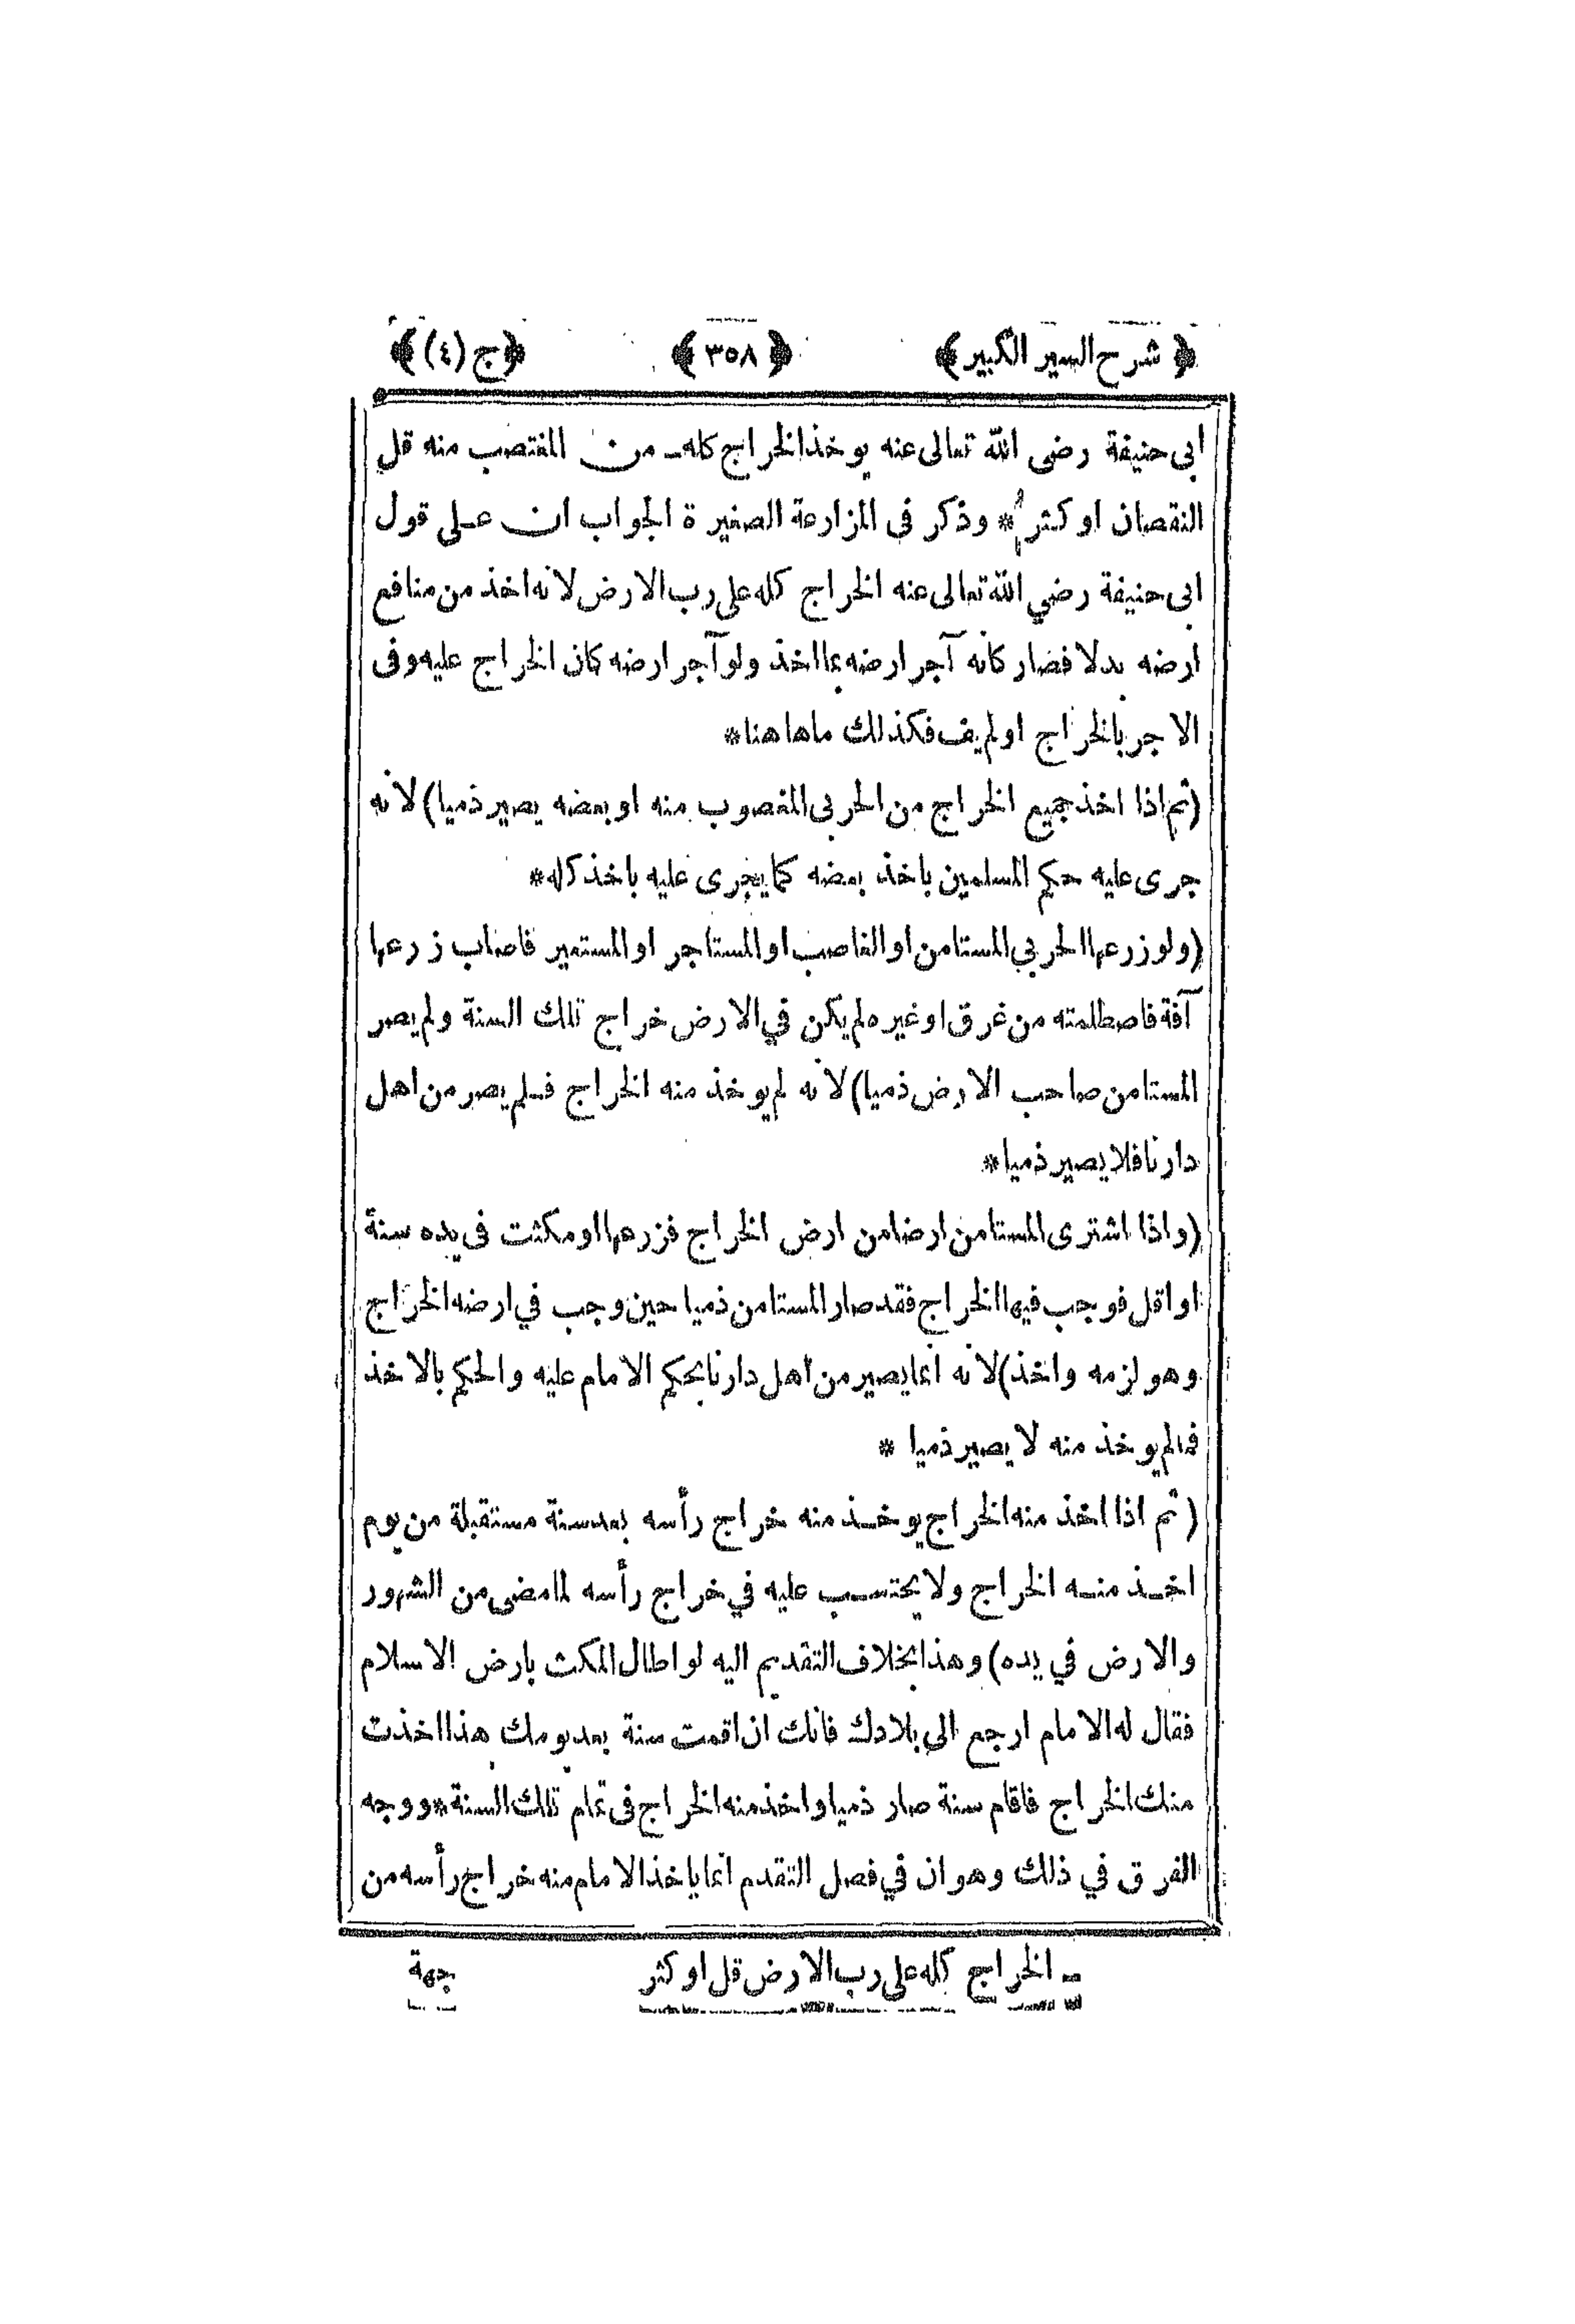 ﴿ شرح السير الكبير ﴾ ﴿ ٣٥٨ ﴾ ﴿ ج (٤) ﴾
ابى حنيفة رضى الله تعالى عنه يوخذ الخراج كله ـ من المغتصب منه قل
النقصان او كثر * وذكر فى المزارعة الصغيرة الجواب ان على قول
ابى حنيفة رضي الله تعالى عنه الخراج كله على رب الارض لانه اخذ من منافع
ارضه بدلا فصار كانه آجر ارضه بما اخذ ولو آجر ارضه كان الخراج عليه وفى
الاجر بالخراج او لم يف فكذلك ماهاهنا *
(ثم اذا اخذ جميع الخراج من الحربى المغصوب منه او بعضه يصير ذميا) لانه
جرى عليه حكم المسلمين باخذ بعضه كما يجرى عليه باخذ كله *
(ولو زرعها الحربي المستامن او الغاصب او المستاجر او المستعير فاصاب زرعها
آفة فاصطلمته من غرق او غيره لم يكن في الارض خراج تلك السنة ولم يصر
المستامن صاحب الارض ذميا) لانه لم يوخذ منه الخراج فلم يصر من اهل
دارنا فلا يصير ذميا *
(واذا اشترى المستامن ارضا من ارض الخراج فزرعها او مكثت فى يده سنة
او اقل فوجب فيها الخراج فقد صار المستامن ذميا حين وجب في ارضه الخراج
وهو لزمه واخذ) لانه انما يصير من اهل دارنا بحكم الامام عليه والحكم بالاخذ
فمالم يوخذ منه لا يصير ذميا *
(ثم اذا اخذ منه الخراج يوخذ منه خراج رأسه بعد سنة مستقبلة من يوم
اخذ منه الخراج ولا يحتسب عليه في خراج رأسه لمامضى من الشهور
والارض في يده) وهذا بخلاف التقديم اليه لو اطال المكث بارض الاسلام
فقال له الامام ارجع الى بلادك فانك ان اقمت سنة بعد يومك هذا اخذت
منك الخراج فاقام سنة صار ذميا واخذ منه الخراج فى تمام تلك السنة * ووجه
الفرق في ذلك وهو ان في فصل التقدم انما ياخذ الامام منه خراج رأسه من
ـ الخراج كله على رب الارض قل او كثر جهة